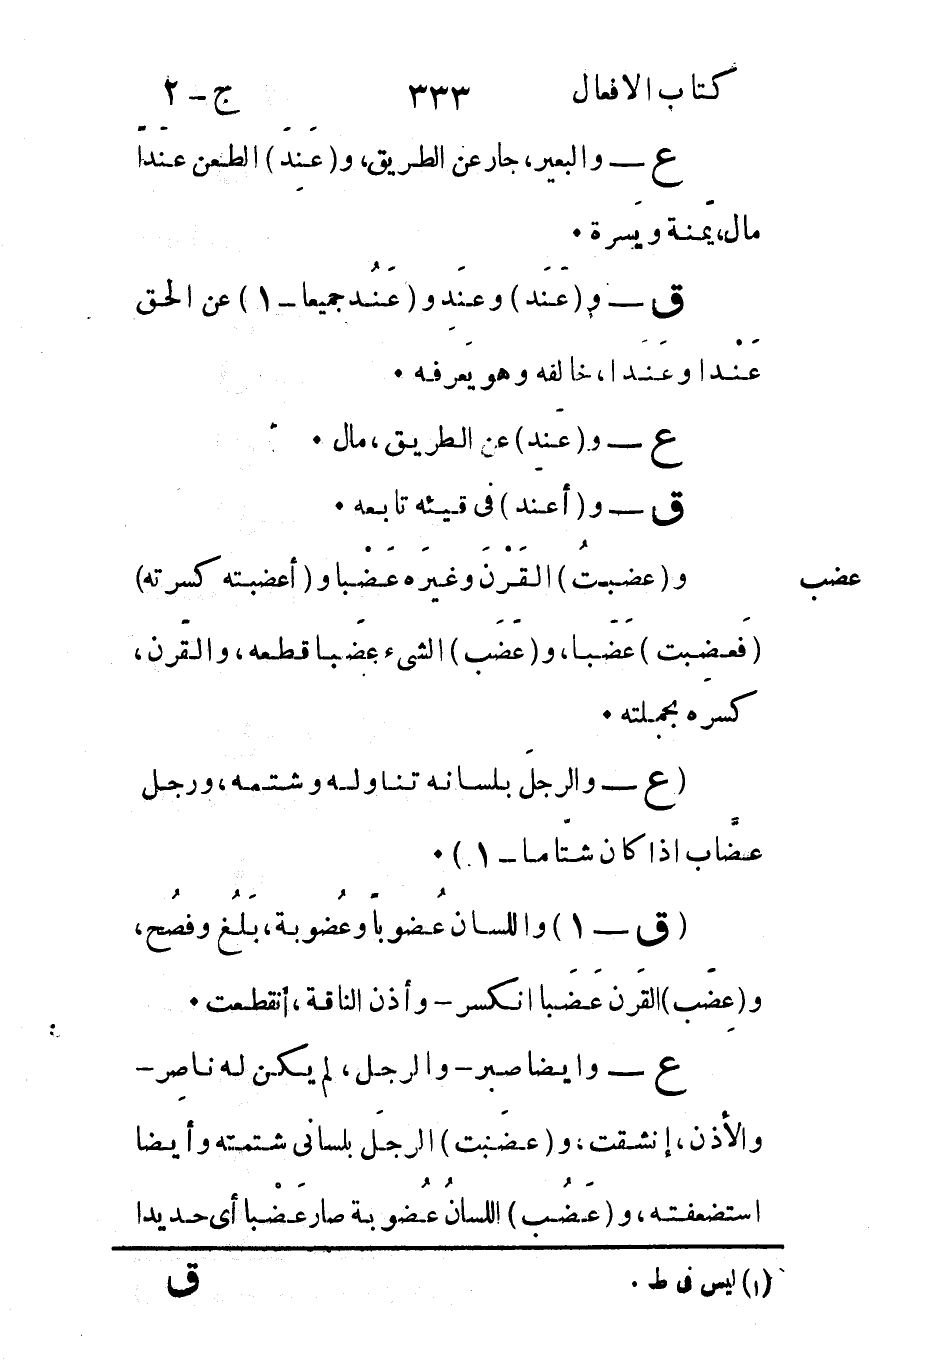 كتاب الافعال ٣٣٣ ج - ٢
ع — والبعير، جار عن الطريق، و(عَنَدَ) الطعن عندًا
مال، يَمنة ويَسرة •
ق — و(عَنَد) وعنِد و(عَنُد جميعا - ١) عن الحق
عَنْدا وعَنَدا، خالفه وهو يَعرفه •
ع — و(عَنِد) عن الطريق، مال •
ق — و(أعند) فى قيئه تابعه •
عضب و(عضبتُ) القَرْنَ وغيرَه عَضْبا و(أعضبته كسرته)
(فعضِبت) عَضَبا، و(عَضَب) الشىء عضبا قطعه، والقَرن،
كسره بجملته •
(ع — والرجلَ بلسانه تناوله وشتمه، ورجل
عضَّاب اذا كان شتّاما - ١) •
(ق — ١) واللسان عُضوباً وعُضوبة، بَلُغ وفصُح،
و(عضِب) القَرن عَضَبا انكسر - وأذن الناقة، أنقطعت •
ع — وايضا صبر - والرجل، لم يكن له ناصِر -
والأذن، إنشقت، و(عضَبت) الرجلَ بلسانى شتمته وأيضا
استضعفته، و(عَضُب) اللسانُ عُضوبة صار عَضْبا أى حديدا
(١) ليس فى ط . ق